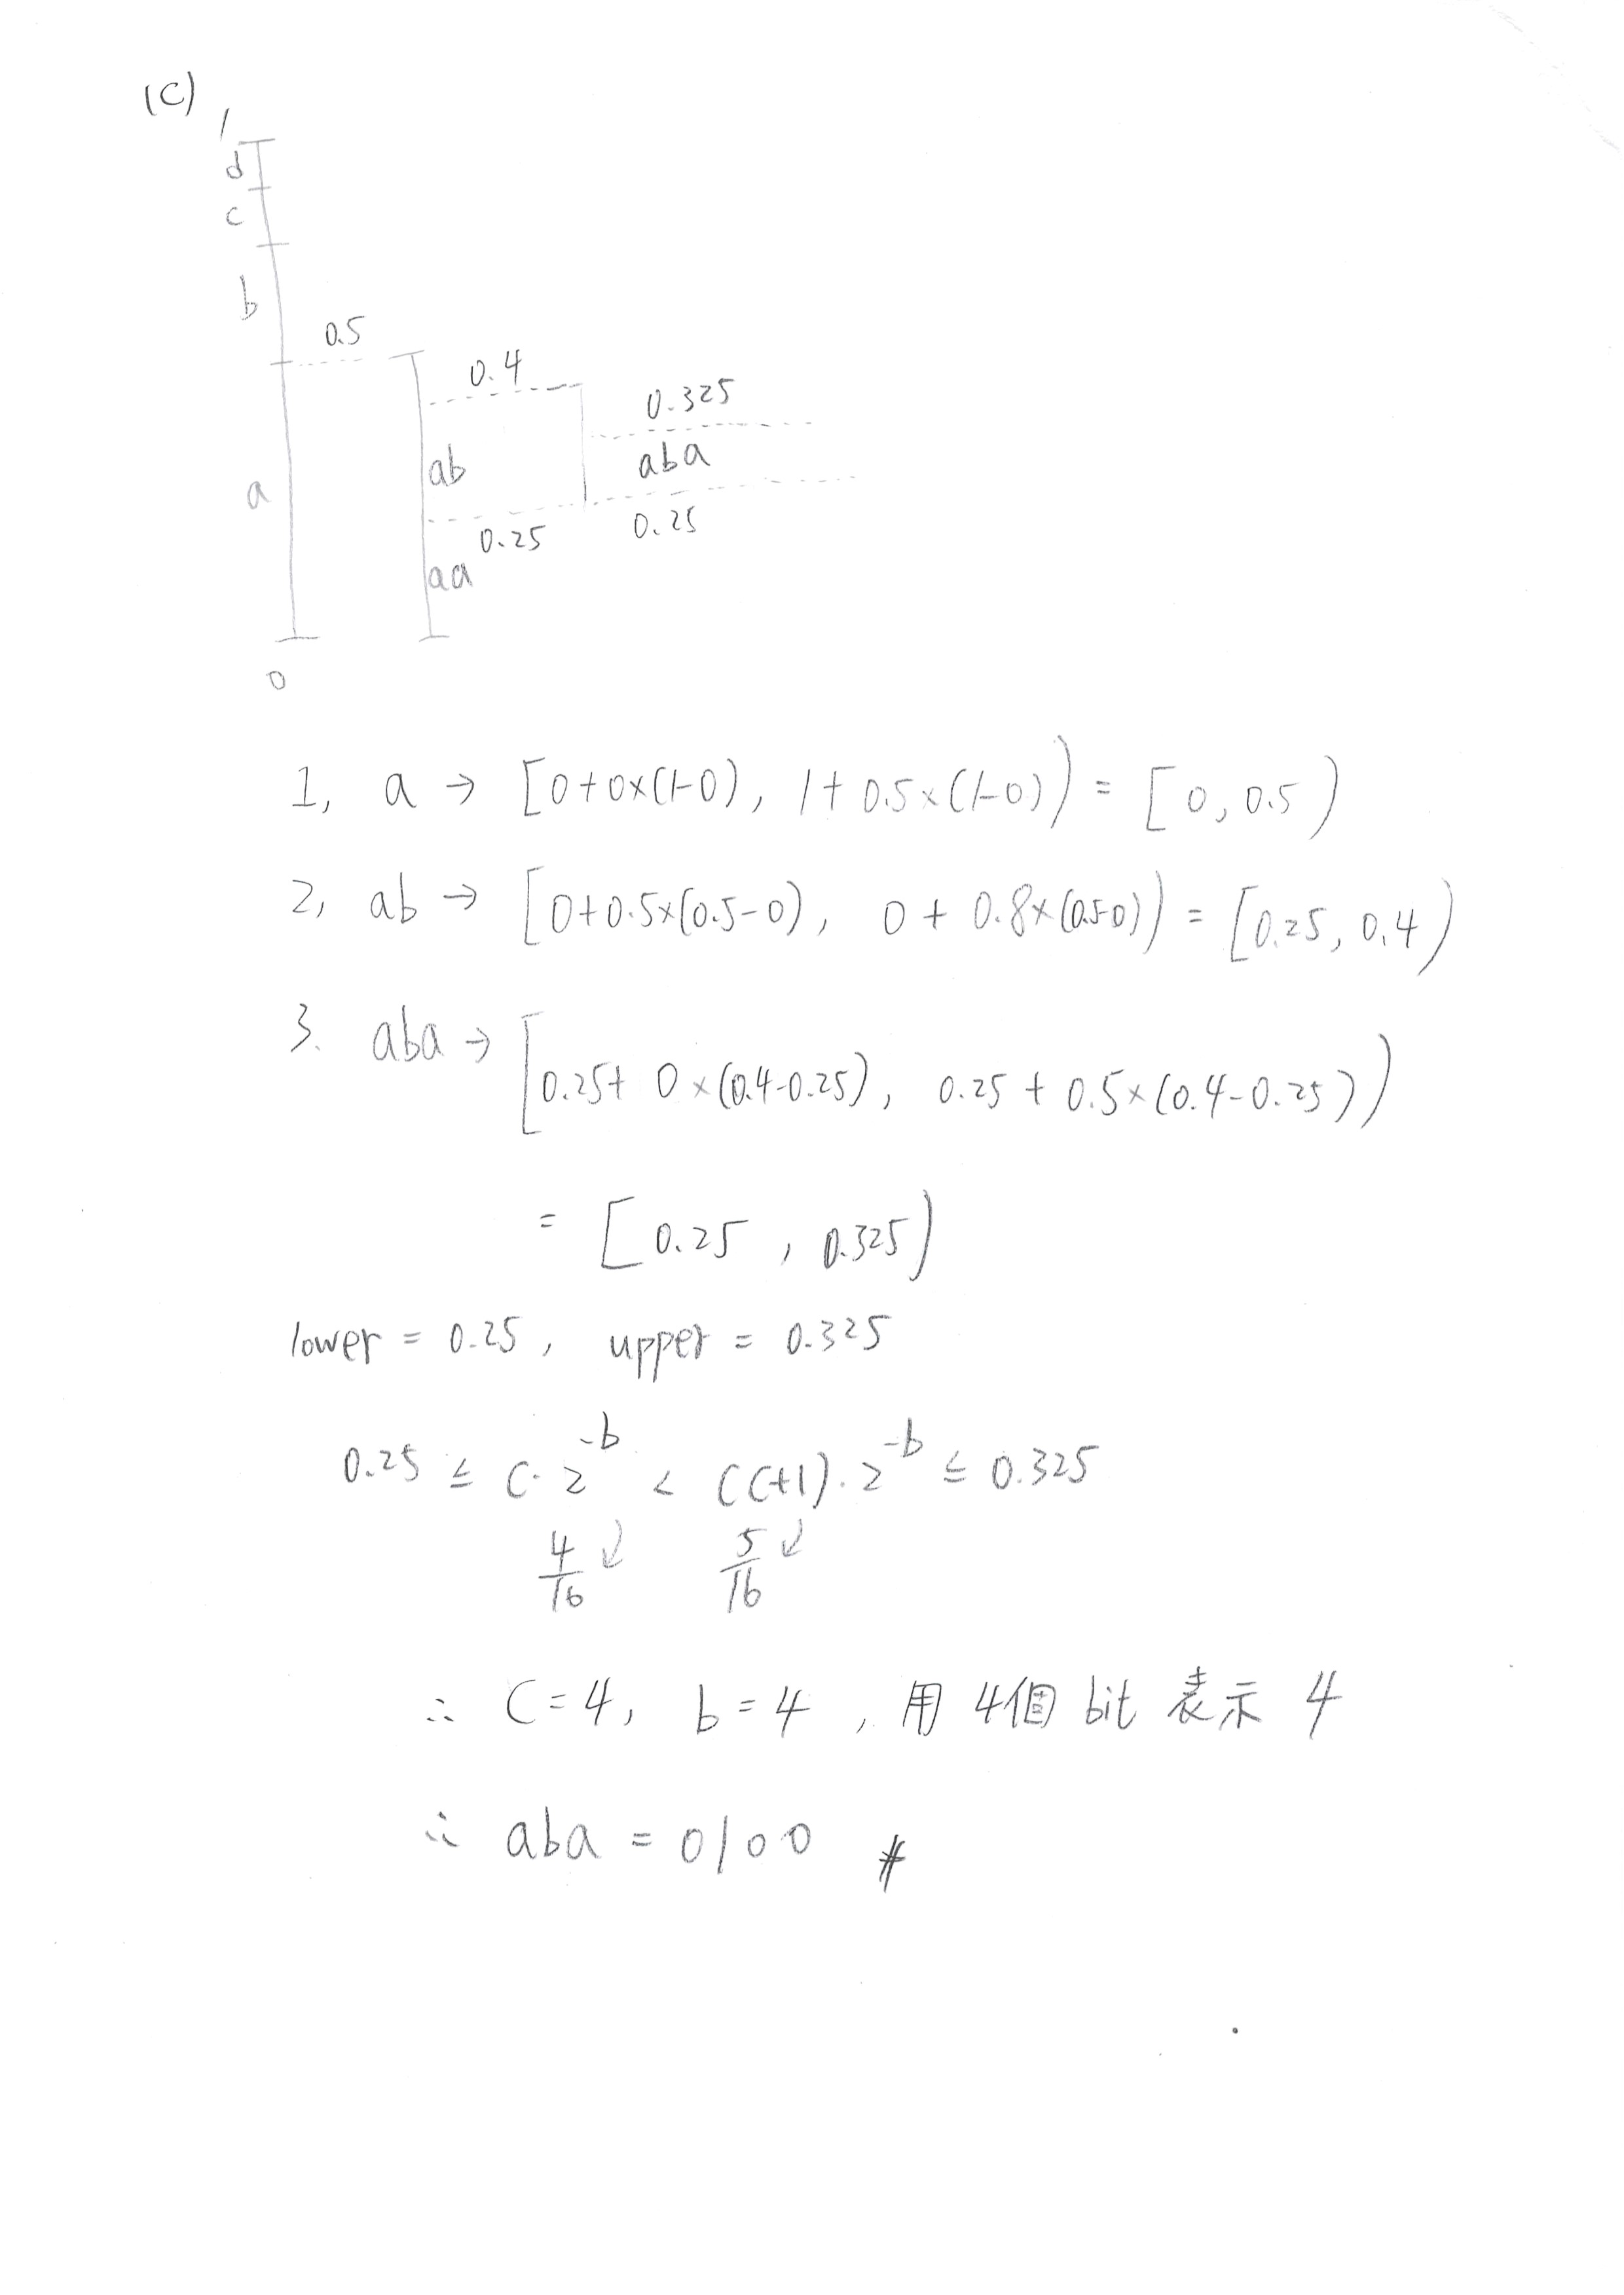 (C)
1
d
c
b
0.5
0.4
0.325
ab
aba
a
0.25
0.25
aa
0
1, a → [0+0×(1-0), 1+0.5×(1-0)) = [0, 0.5)
2, ab → [0+0.5×(0.5-0), 0+0.8×(0.5-0)) = [0.25, 0.4)
3. aba → [0.25+0×(0.4-0.25), 0.25+0.5×(0.4-0.25))
= [0.25, 0.325)
lower = 0.25, upper = 0.325
0.25 ≤ C·2^-b < (C+1)·2^-b ≤ 0.325
4/16 5/16
∴ C=4, b=4, 用4個bit表示4
∴ aba = 0100 #